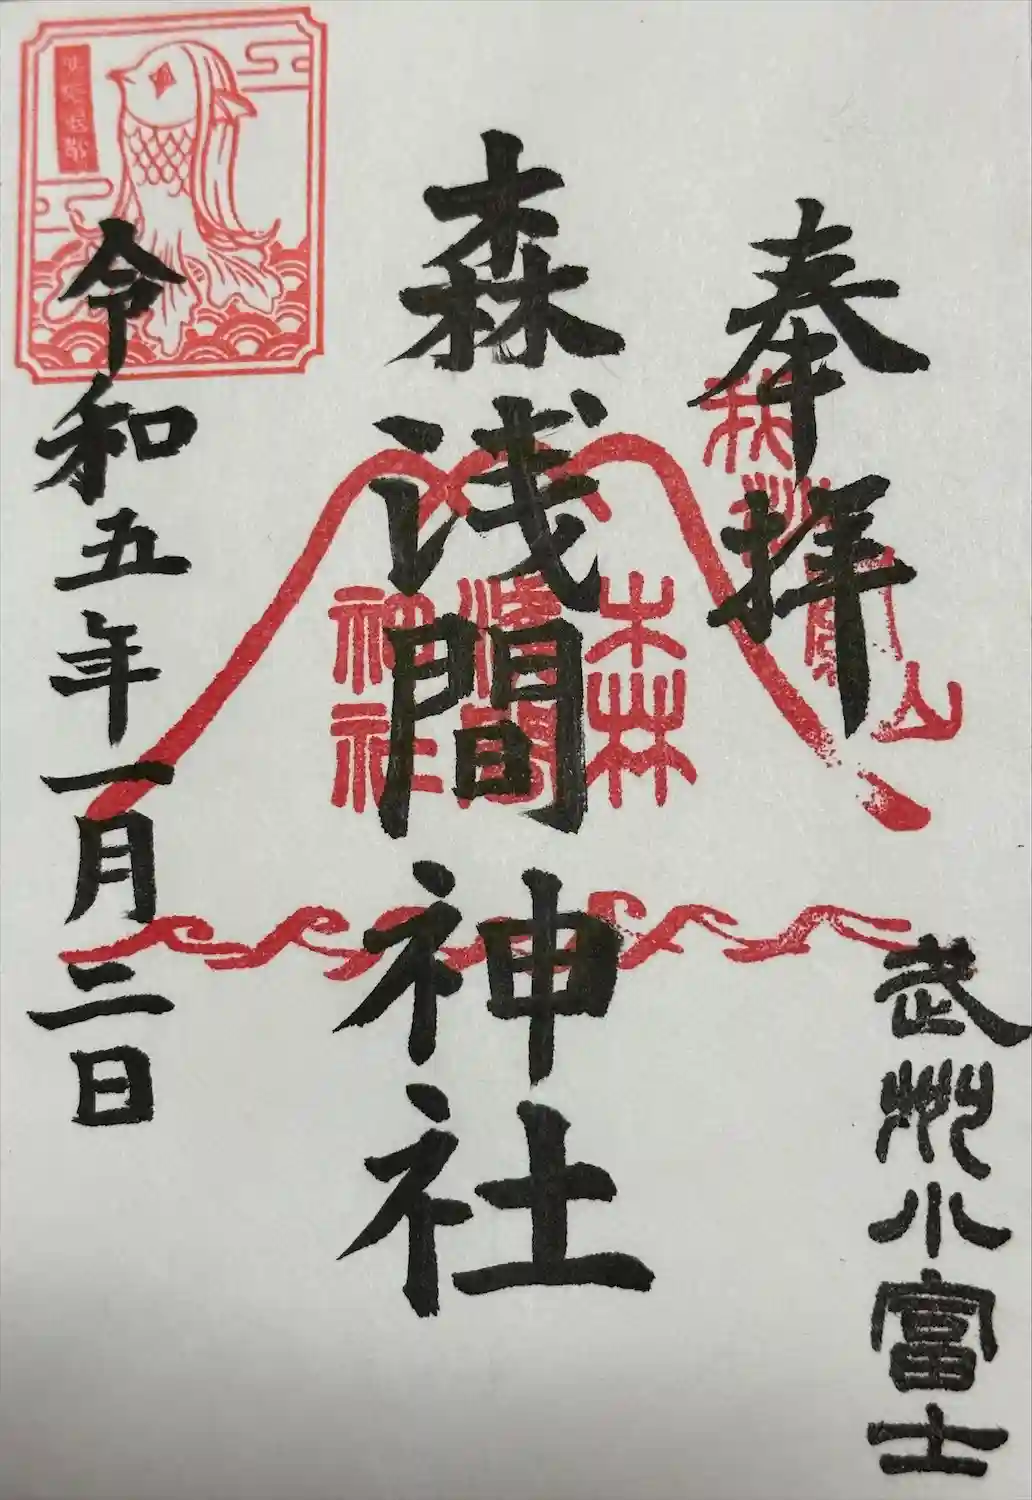 奉拝
武州小富士
森浅間神社
森
浅間
神社
令和五年一月二日